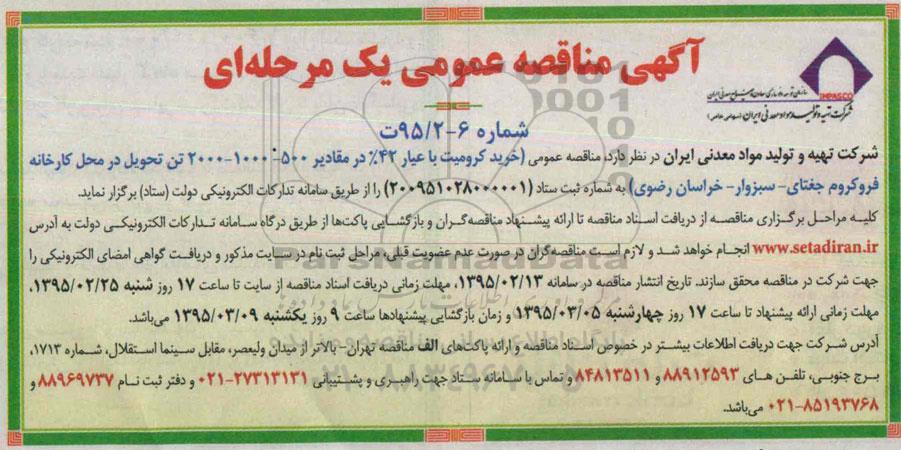 آگهی مناقصه عمومی یک مرحله‌ای
IMPASCO
شرکت تهیه و تولید مواد معدنی ایران (سهامی خاص)
شماره ۶-۹۵/۲ت
شرکت تهیه و تولید مواد معدنی ایران در نظر دارد، مناقصه عمومی (خرید کرومیت با عیار ۴۲٪ در مقادیر ۵۰۰-۱۰۰۰-۲۰۰۰ تن تحویل در محل کارخانه
فروکروم جغتای- سبزوار- خراسان رضوی) به شماره ثبت ستاد (۲۰۰۹۵۱۰۲۸۰۰۰۰۰۱) را از طریق سامانه تدارکات الکترونیکی دولت (ستاد) برگزار نماید.
کلیه مراحل برگزاری مناقصه از دریافت اسناد مناقصه تا ارائه پیشنهاد مناقصه‌گران و بازگشایی پاکت‌ها از طریق درگاه سامانه تدارکات الکترونیکی دولت به آدرس
www.setadiran.ir انجام خواهد شد و لازم است مناقصه‌گران در صورت عدم عضویت قبلی، مراحل ثبت نام در سایت مذکور و دریافت گواهی امضای الکترونیکی را
جهت شرکت در مناقصه محقق سازند. تاریخ انتشار مناقصه در سامانه ۱۳۹۵/۰۲/۱۳، مهلت زمانی دریافت اسناد مناقصه از سایت تا ساعت ۱۷ روز شنبه ۱۳۹۵/۰۲/۲۵،
مهلت زمانی ارائه پیشنهاد تا ساعت ۱۷ روز چهارشنبه ۱۳۹۵/۰۳/۰۵ و زمان بازگشایی پیشنهادها ساعت ۹ روز یکشنبه ۱۳۹۵/۰۳/۰۹ می‌باشد.
آدرس شرکت جهت دریافت اطلاعات بیشتر در خصوص اسناد مناقصه و ارائه پاکت‌های الف مناقصه تهران- بالاتر از میدان ولیعصر، مقابل سینما استقلال، شماره ۱۷۱۳،
برج جنوبی، تلفن های ۸۸۹۱۲۵۹۳ و ۸۴۸۱۳۵۱۱ و تماس با سامانه ستاد جهت راهبری و پشتیبانی ۲۷۳۱۳۱۳۱-۰۲۱ و دفتر ثبت نام ۸۸۹۶۹۷۳۷ و
۸۵۱۹۳۷۶۸-۰۲۱ می‌باشد.
ParsNamadData